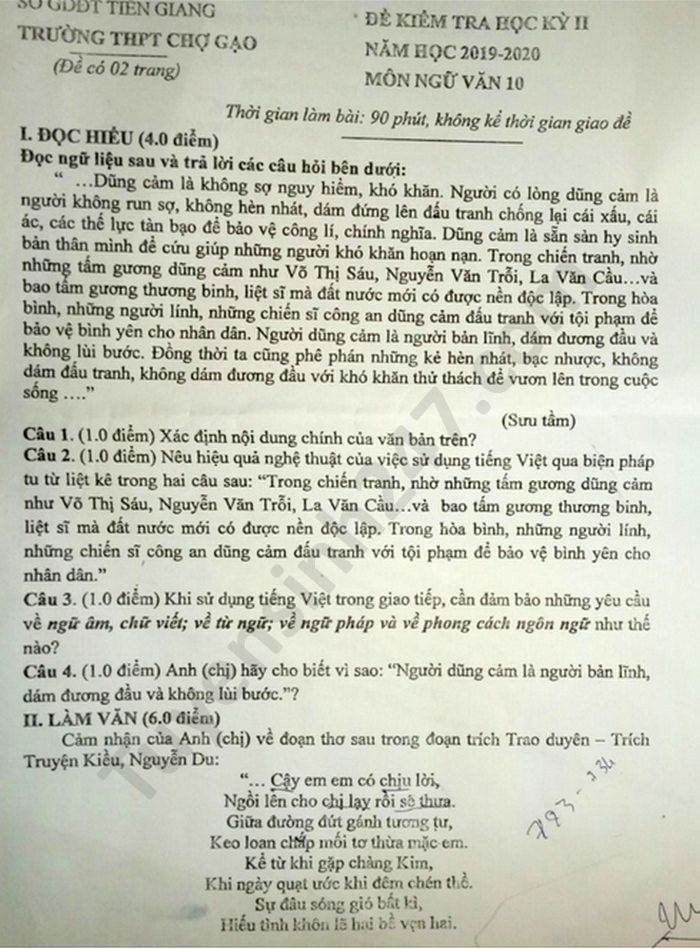 SỞ GDĐT TIỀN GIANG
TRƯỜNG THPT CHỢ GẠO
(Đề có 02 trang)
ĐỀ KIỂM TRA HỌC KỲ II
NĂM HỌC 2019-2020
MÔN NGỮ VĂN 10
Thời gian làm bài: 90 phút, không kể thời gian giao đề
I. ĐỌC HIỂU (4.0 điểm)
Đọc ngữ liệu sau và trả lời các câu hỏi bên dưới:
“ …Dũng cảm là không sợ nguy hiểm, khó khăn. Người có lòng dũng cảm là
người không run sợ, không hèn nhát, dám đứng lên đấu tranh chống lại cái xấu, cái
ác, các thế lực tàn bạo để bảo vệ công lí, chính nghĩa. Dũng cảm là sẵn sàn hy sinh
bản thân mình để cứu giúp những người khó khăn hoạn nạn. Trong chiến tranh, nhờ
những tấm gương dũng cảm như Võ Thị Sáu, Nguyễn Văn Trỗi, La Văn Cầu…và
bao tấm gương thương binh, liệt sĩ mà đất nước mới có được nền độc lập. Trong hòa
bình, những người lính, những chiến sĩ công an dũng cảm đấu tranh với tội phạm để
bảo vệ bình yên cho nhân dân. Người dũng cảm là người bản lĩnh, dám đương đầu và
không lùi bước. Đồng thời ta cũng phê phán những kẻ hèn nhát, bạc nhược, không
dám đấu tranh, không dám đương đầu với khó khăn thử thách để vươn lên trong cuộc
sống ….”
(Sưu tầm)
Câu 1. (1.0 điểm) Xác định nội dung chính của văn bản trên?
Câu 2. (1.0 điểm) Nêu hiệu quả nghệ thuật của việc sử dụng tiếng Việt qua biện pháp
tu từ liệt kê trong hai câu sau: “Trong chiến tranh, nhờ những tấm gương dũng cảm
như Võ Thị Sáu, Nguyễn Văn Trỗi, La Văn Cầu…và bao tấm gương thương binh,
liệt sĩ mà đất nước mới có được nền độc lập. Trong hòa bình, những người lính,
những chiến sĩ công an dũng cảm đấu tranh với tội phạm để bảo vệ bình yên cho
nhân dân.”
Câu 3. (1.0 điểm) Khi sử dụng tiếng Việt trong giao tiếp, cần đảm bảo những yêu cầu
về ngữ âm, chữ viết; về từ ngữ; về ngữ pháp và về phong cách ngôn ngữ như thế
nào?
Câu 4. (1.0 điểm) Anh (chị) hãy cho biết vì sao: “Người dũng cảm là người bản lĩnh,
dám đương đầu và không lùi bước.”?
II. LÀM VĂN (6.0 điểm)
Cảm nhận của Anh (chị) về đoạn thơ sau trong đoạn trích Trao duyên – Trích
Truyện Kiều, Nguyễn Du:
“… Cậy em em có chịu lời,
Ngồi lên cho chị lạy rồi sẽ thưa.
Giữa đường đứt gánh tương tư,
Keo loan chắp mối tơ thừa mặc em.
Kể từ khi gặp chàng Kim,
Khi ngày quạt ước khi đêm chén thề.
Sự đâu sóng gió bất kì,
Hiếu tình khôn lẽ hai bề vẹn hai.
Tuyensinh247.com